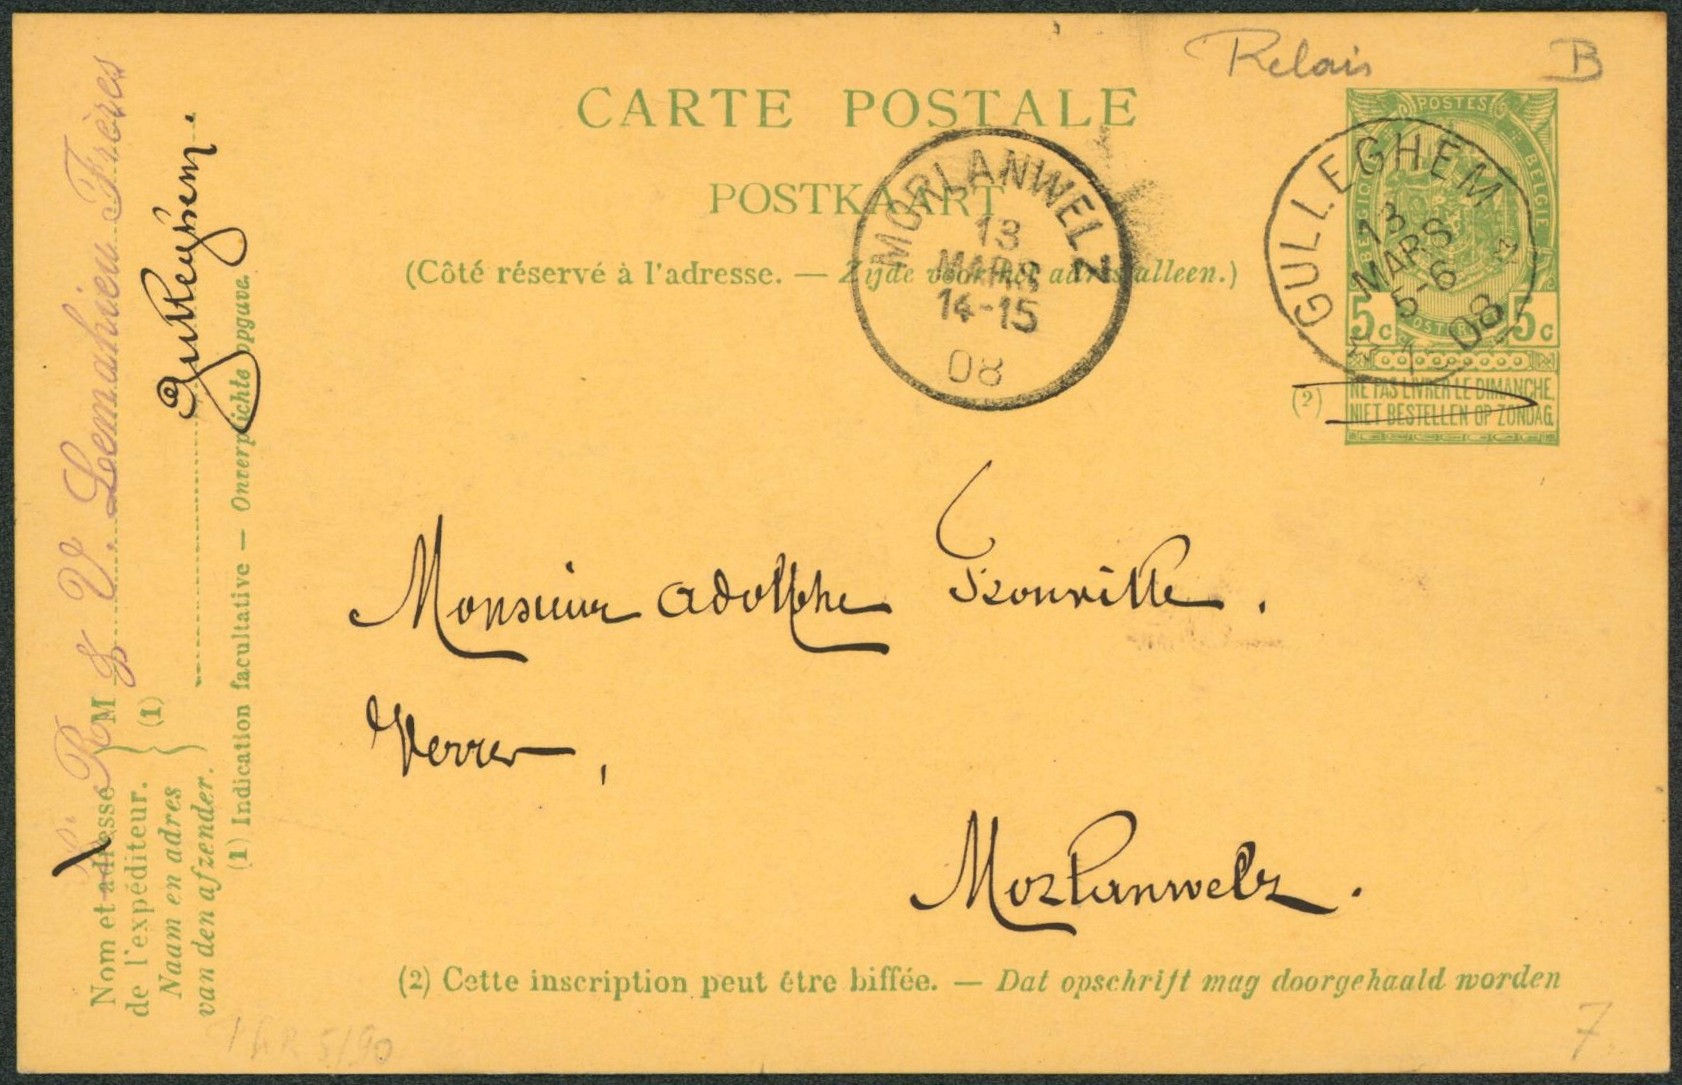 Relais B
CARTE POSTALE
POSTKAART
(Côté réservé à l'adresse. — Zijde voor het adres alleen.)
MORLANWELZ
13
MARS
14-15
08
POSTES
BELGIQUE BELGIE
GULLEGHEM
13
MARS
5-6
08
5c 5c
(2) NE PAS LIVRER LE DIMANCHE.
NIET BESTELLEN OP ZONDAG.
Monsieur Adolphe
Verrer,
Morlanwelz.
(2) Cette inscription peut étre biffée. — Dat opschrift mag doorgehaald worden
7
R & V. Leemahieu Frères
Nom et adresse M
de l'expéditeur. (1)
Naam en adres
van den afzender.
(1) Indication facultative — Onverplichte opgave.